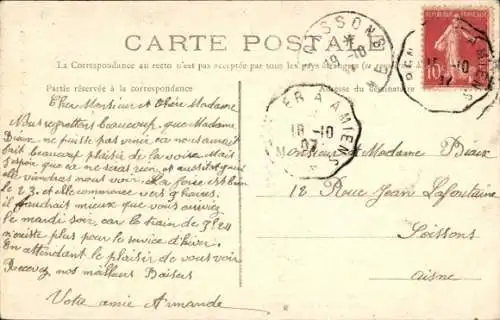 CARTE POSTALE
La Correspondance au recto n'est pas acceptée par tous les pays
Partie réservée à la correspondance
Adresse du destinataire
Cher Monsieur et Chère Madame
Nous regrettons beaucoup, que Madame
Diaux ne puisse pas venir ça nous aurait
fait beaucoup plaisir de la voir. Mais
j'espère que ce ne sera rien, et aussitôt qu'elle
elle viendras nous voir. La foire est bien
le 23, et elle commence vers 9 heures,
il faudrait mieux que vous arrivez
le mardi soir, car le train de 3h24
n'existe plus pour le service d'hiver.
En attendant le plaisir de vous voir
Recevez nos meilleurs Baisers
Votre amie Armande
Monsieur et Madame Diaux
12 Rue Jean Lafontaine
Soissons
Aisne
SOISSONS
19-10
A AMIENS
18-10
07
10